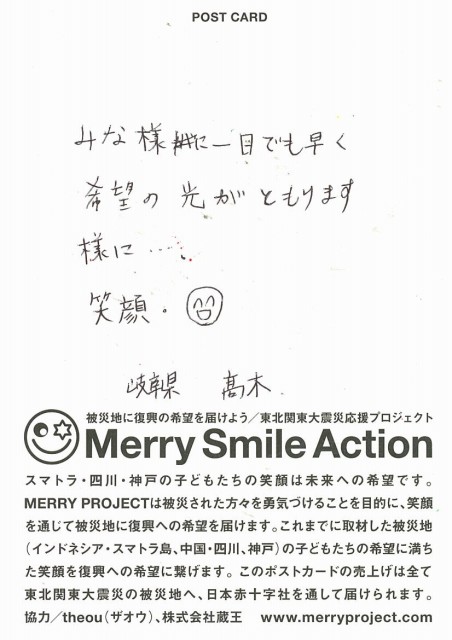 POST CARD
みな様に一日でも早く
希望の光がともります
様に…．
笑顔．
岐阜県 髙木．
被災地に復興の希望を届けよう／東北関東大震災応援プロジェクト
Merry Smile Action
スマトラ・四川・神戸の子どもたちの笑顔は未来への希望です。
MERRY PROJECTは被災された方々を勇気づけることを目的に、笑顔
を通じて被災地に復興への希望を届けます。これまでに取材した被災地
（インドネシア・スマトラ島、中国・四川、神戸）の子どもたちの希望に満ち
た笑顔を復興への希望に繋げます。このポストカードの売上げは全て
東北関東大震災の被災地へ、日本赤十字社を通して届けられます。
協力／theou（ザオウ）、株式会社蔵王 www.merryproject.com